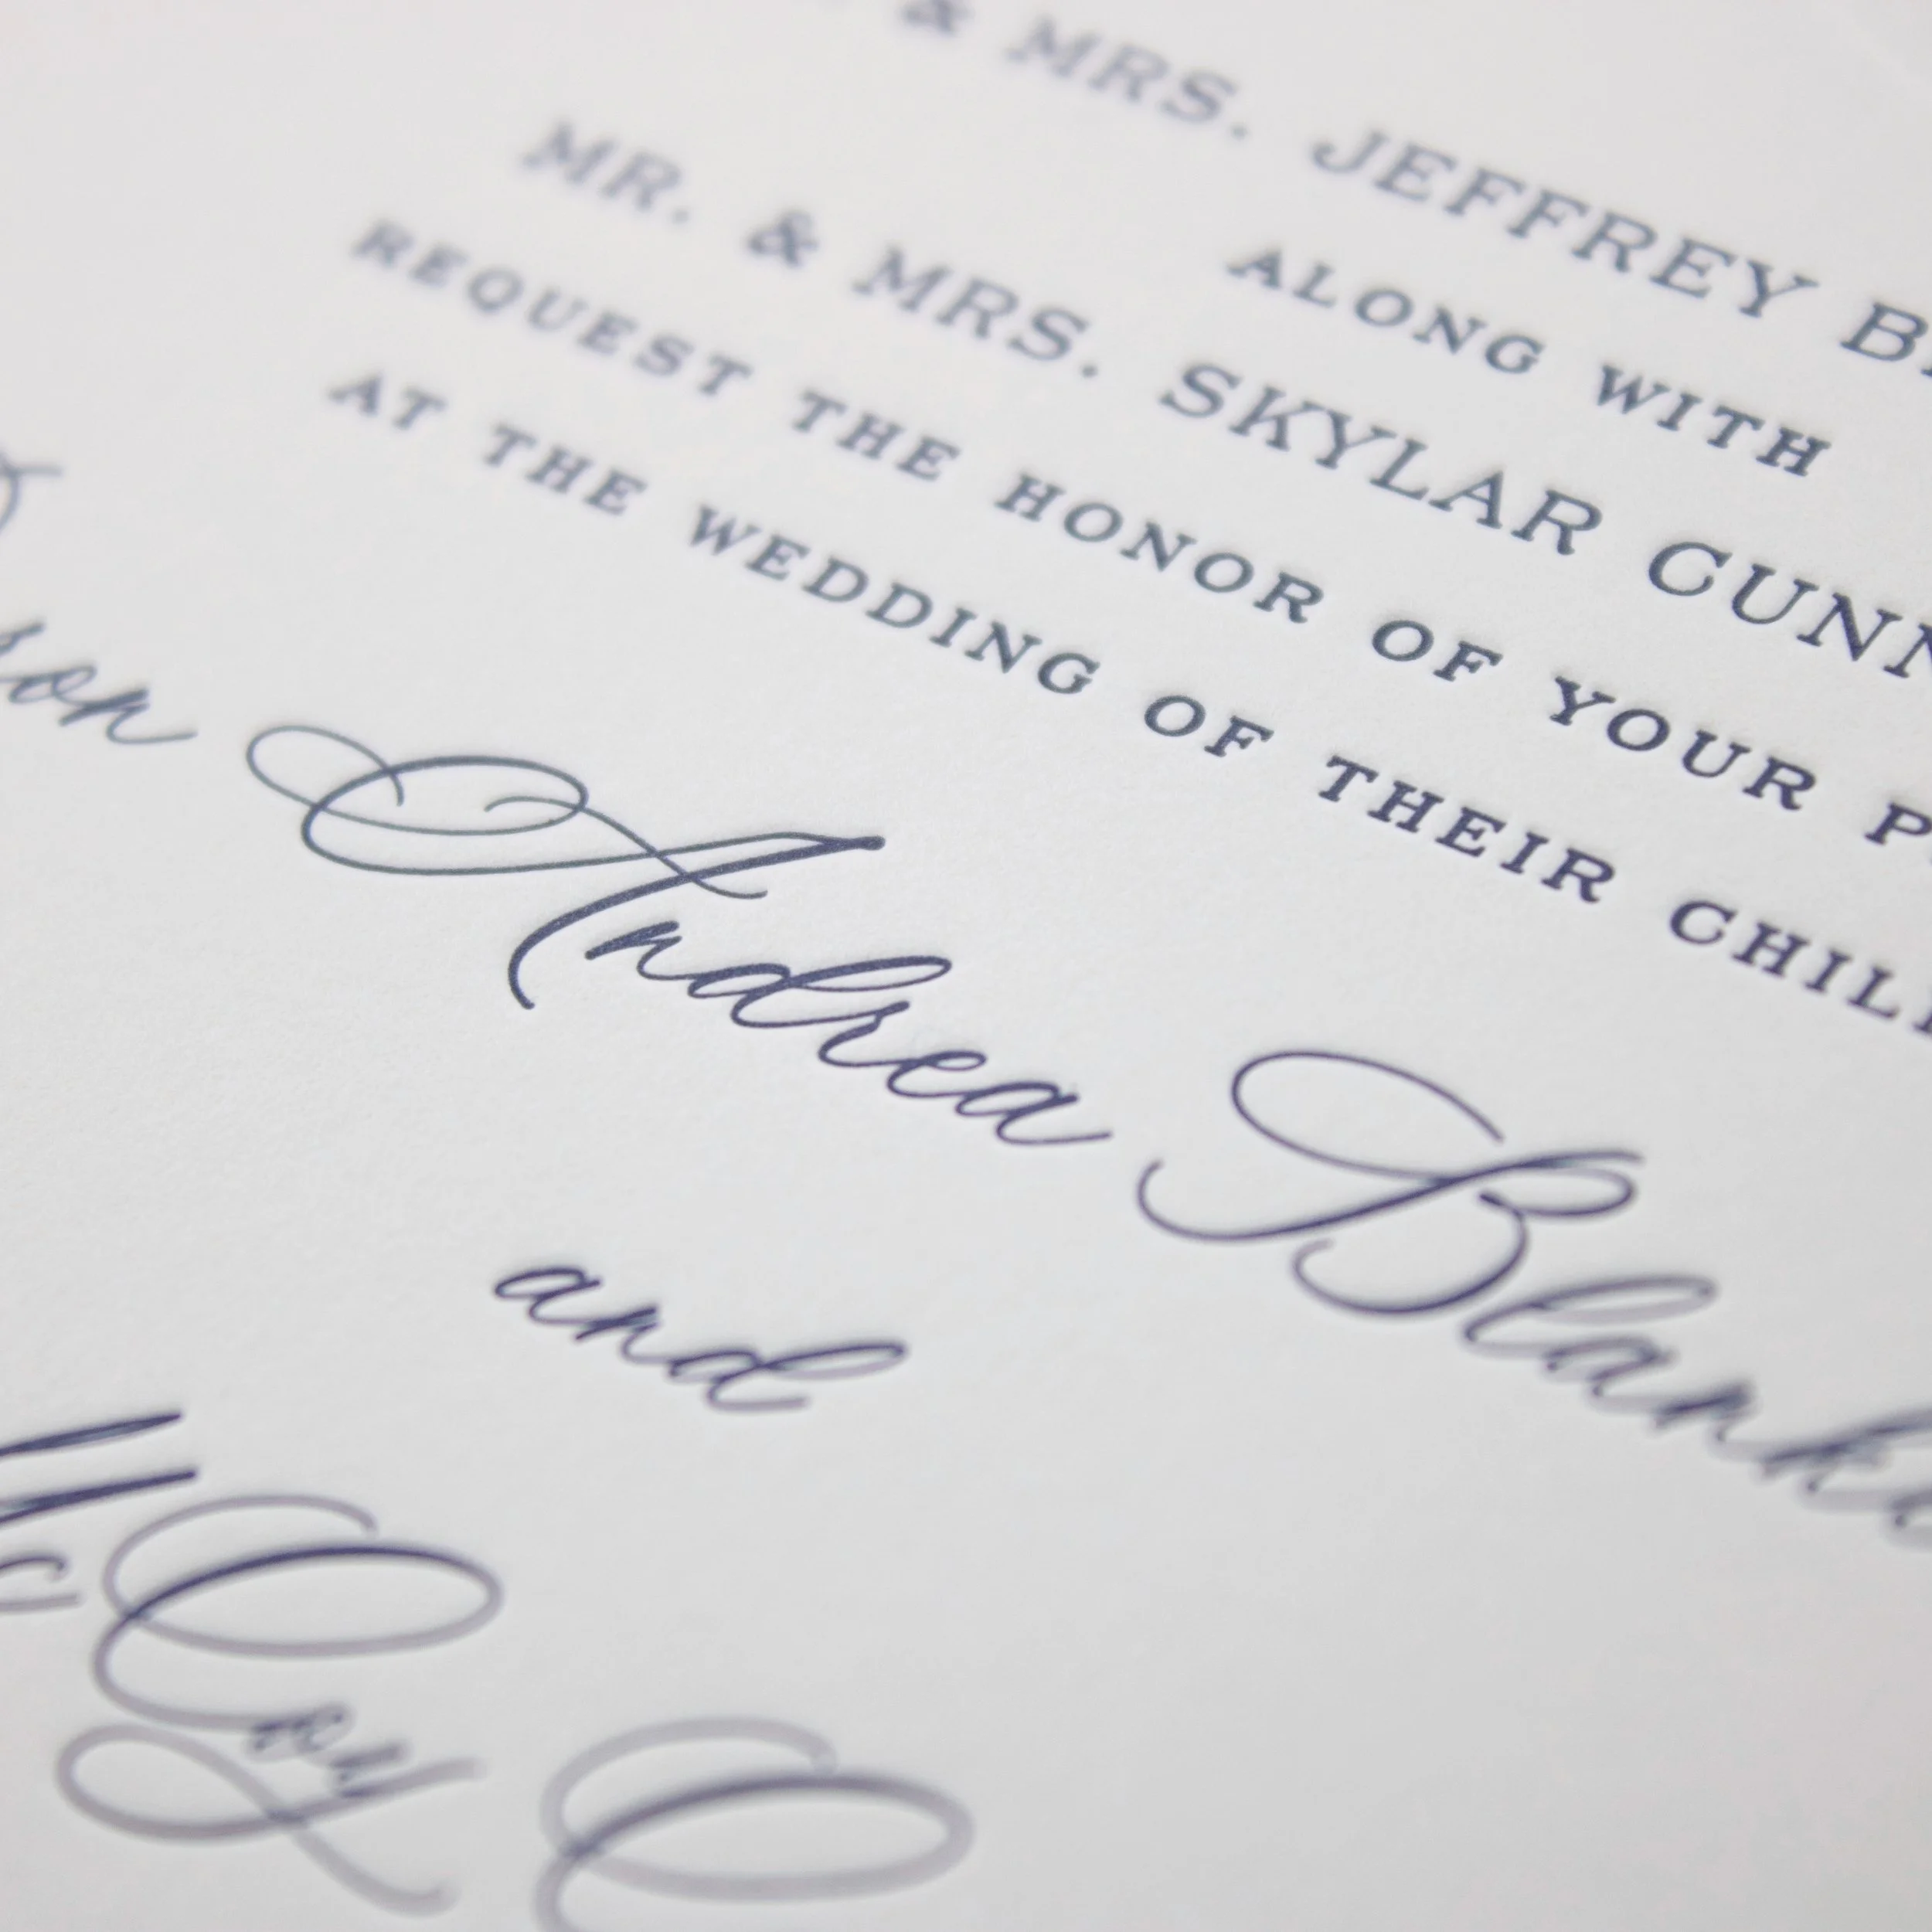 & MRS. JEFFREY
ALONG WITH
MR. & MRS. SKYLAR GUNN
REQUEST THE HONOR OF YOUR P
AT THE WEDDING OF THEIR CHIL
son Andrea Blank
and
Mc Coy C